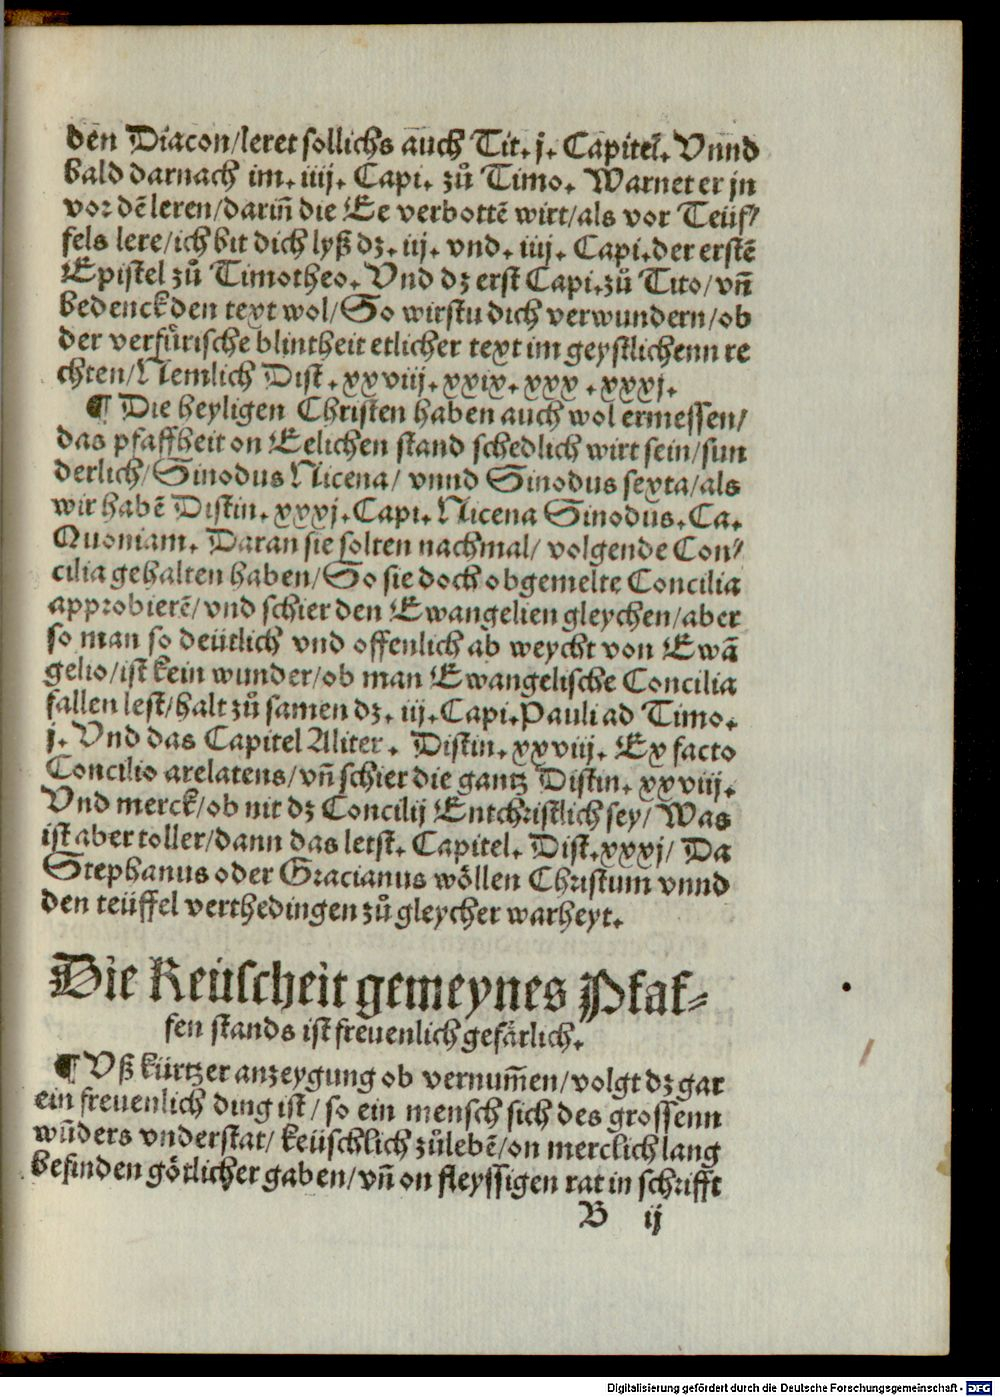 den Diacon/leret sollichs auch Tit. j. Capitel. Vnnd
bald darnach im. iiij. Capi. zů Timo. Warnet er jn
vor dē leren/dariñ die Ee verbottē wirt/als vor Teüf⸗
fels lere/ich bit dich lyß dz. iij. vnd. iiij. Capi. der erstē
Epistel zů Timotheo. Vnd dz erst Capi. zů Tito/vñ
bedenck den text wol/So wirstu dich verwundern/ob
der verfürische blintheit etlicher text im geystlichenn re
chten/Nemlich Dist. xxviij. xxix. xxx. xxxj.
¶ Die heyligen Christen haben auch wol ermessen/
das pfaffheit on Eelichen stand schedlich wirt sein/sun
derlich/Sinodus Nicena/ vnnd Sinodus sexta/als
wir habē Distin. xxxj. Capi. Nicena Sinodus. Ca.
Quoniam. Daran sie solten nachmal/ volgende Con⸗
cilia gehalten haben/So sie doch obgemelte Concilia
approbierē/vnd schier den Ewangelien gleychen/aber
so man so deütlich vnd offenlich ab weycht von Ewā
gelio/ist kein wunder/ob man Ewangelische Concilia
fallen lest/halt zů samen dz. iij. Capi. Pauli ad Timo.
j. Vnd das Capitel Aliter. Distin. xxviij. Ex facto
Concilio arelatens/vñ schier die gantz Distin. xxviij.
Vnd merck/ob nit dz Concilij Entchristlich sey/ Was
ist aber toller/dann das letst. Capitel. Dist. xxxj/ Da
Stephanus oder Gracianus wöllen Christum vnnd
den teüffel verthedingen zů gleycher warheyt.
Die Keüscheit gemeynes Pfaf⸗
fen stands ist freuenlich gefärlich.
¶ Vß kürtzer anzeygung ob vernum̃en/volgt dz gar
ein freuenlich ding ist/ so ein mensch sich des grossenn
wũders vnderstat/ keüschlich zůlebē/on merclich lang
befinden götlicher gaben/vñ on fleyssigen rat in schrifft
B ij
Digitalisierung gefördert durch die Deutsche Forschungsgemeinschaft - DFG